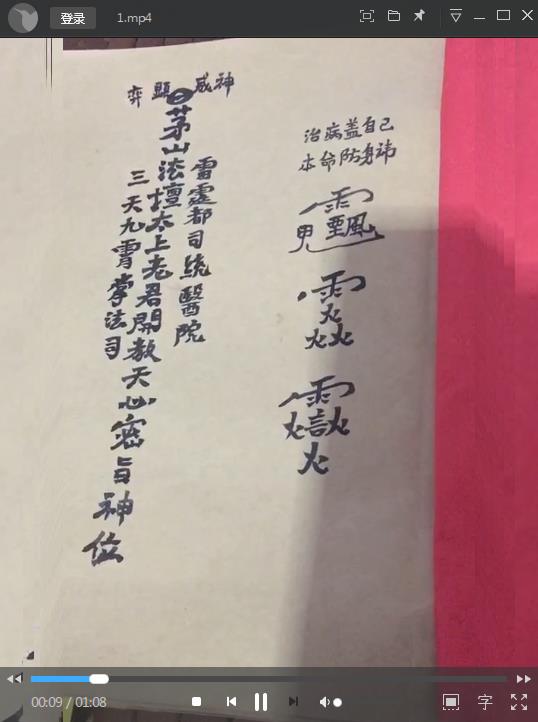 登录 1.mp4
治病盖自己
本命防身讳
神威 顯弈
雷霆都司統醫院
茅山法壇太上老君開教天心密旨神位
三天九霄掌法司
00:09 / 01:08 字